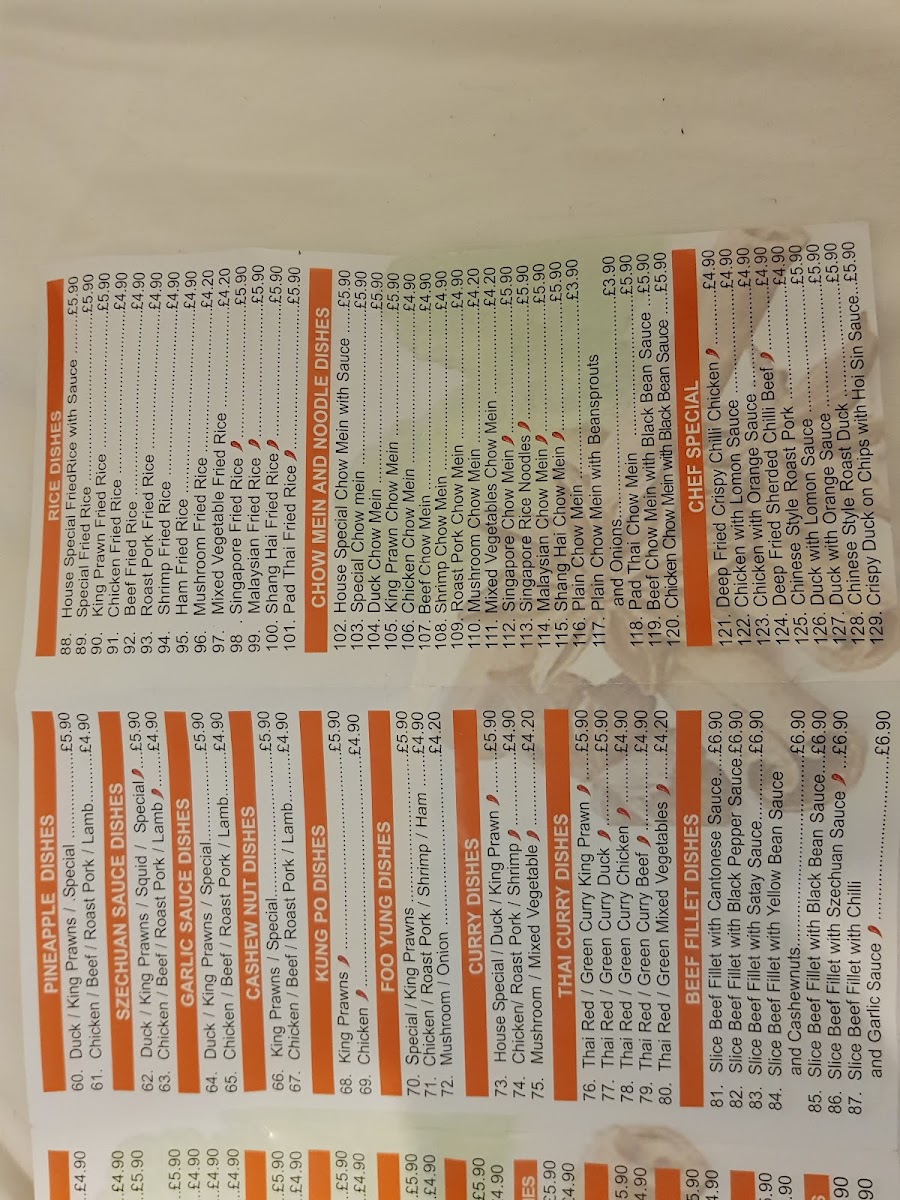 £4.90
£4.90
£5.90
£5.90
£4.90
£4.90
£5.90
£4.90
£5.90
£4.90
£5.90
£4.90
£5.90
£4.90
IES
£5.90
£4.90
5.90
4.90
5.90
4.90
.90
90
S
90
90
PINEAPPLE DISHES
60. Duck / King Prawns / .Special ............£5.90
61. Chicken / Beef / Roast Pork / Lamb....£4.90
SZECHUAN SAUCE DISHES
62. Duck / King Prawns / Squid / Special ....£5.90
63. Chicken / Beef / Roast Pork / Lamb ....£4.90
GARLIC SAUCE DISHES
64. Duck / King Prawns / Special..............£5.90
65. Chicken / Beef / Roast Pork / Lamb ....£4.90
CASHEW NUT DISHES
66. King Prawns / Special.......................£5.90
67. Chicken / Beef / Roast Pork / Lamb....£4.90
KUNG PO DISHES
68. King Prawns ..............................£5.90
69. Chicken ..............................£4.90
FOO YUNG DISHES
70. Special / King Prawns ....................£5.90
71. Chicken / Roast Pork / Shrimp / Ham .......£4.90
72. Mushroom / Onion .........................£4.20
CURRY DISHES
73. House Special / Duck / King Prawn .......£5.90
74. Chicken/ Roast Pork / Shrimp ............£4.90
75. Mushroom / Mixed Vegetable ............£4.20
THAI CURRY DISHES
76. Thai Red / Green Curry King Prawn ......£5.90
77. Thai Red / Green Curry Duck .............£5.90
78. Thai Red / Green Curry Chicken ..........£4.90
79. Thai Red / Green Curry Beef .............£4.90
80. Thai Red / Green Mixed Vegetables ......£4.20
BEEF FILLET DISHES
81. Slice Beef Fillet with Cantonese Sauce....£6.90
82. Slice Beef Fillet with Black Pepper Sauce.£6.90
83. Slice Beef Fillet with Satay Sauce..........£6.90
84. Slice Beef Fillet with Yellow Bean Sauce
and Cashewnuts..............................£6.90
85. Slice Beef Fillet with Black Bean Sauce...£6.90
86. Slice Beef Fillet with Szechuan Sauce ....£6.90
87. Slice Beef Fillet with Chilli
and Garlic Sauce ..............................£6.90
RICE DISHES
88. House Special FriedRice with Sauce ......£5.90
89. Special Fried Rice ..............................£5.90
90. King Prawn Fried Rice ........................£5.90
91. Chicken Fried Rice ..............................£4.90
92. Beef Fried Rice ..............................£4.90
93. Roast Pork Fried Rice ........................£4.90
94. Shrimp Fried Rice ..............................£4.90
95. Ham Fried Rice ..............................£4.90
96. Mushroom Fried Rice ........................£4.20
97. Mixed Vegetable Fried Rice ................£4.20
98 . Singapore Fried Rice ........................£5.90
99. Malaysian Fried Rice ........................£5.90
100. Shang Hai Fried Rice ........................£5.90
101. Pad Thai Fried Rice ........................£5.90
CHOW MEIN AND NOODLE DISHES
102. House Special Chow Mein with Sauce ....£5.90
103. Special Chow mein ........................£5.90
104. Duck Chow Mein ..............................£5.90
105. King Prawn Chow Mein ....................£5.90
106. Chicken Chow Mein ........................£4.90
107. Beef Chow Mein ..............................£4.90
108. Shrimp Chow Mein ........................£4.90
109. Roast Pork Chow Mein ....................£4.90
110. Mushroom Chow Mein ....................£4.20
111. Mixed Vegetables Chow Mein ............£4.20
112. Singapore Chow Mein ....................£5.90
113. Singapore Rice Noodles ..................£5.90
114. Malaysian Chow Mein ....................£5.90
115. Shang Hai Chow Mein ....................£5.90
116. Plain Chow Mein ..............................£3.90
117. Plain Chow Mein with Beansprouts
and Onions..............................£3.90
118. Pad Thai Chow Mein ....................£5.90
119. Beef Chow Mein with Black Bean Sauce ...£5.90
120. Chicken Chow Mein with Black Bean Sauce ..£5.90
CHEF SPECIAL
121. Deep Fried Crispy Chilli Chicken ..........£4.90
122. Chicken with Lemon Sauce ................£4.90
123. Chicken with Orange Sauce ................£4.90
124. Deep Fried Sherded Chilli Beef ............£4.90
125. Chinese Style Roast Pork ................£4.90
126. Duck with Lomon Sauce ................£5.90
127. Duck with Orange Sauce ................£5.90
128. Chinese Style Roast Duck ................£5.90
129. Crispy Duck on Chips with Hoi Sin Sauce..£5.90